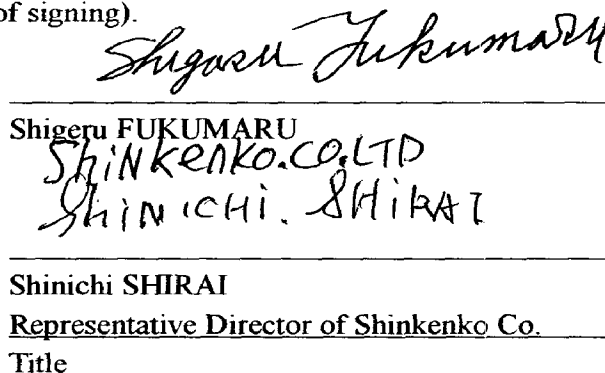 of signing).
Shigeru Fukumaru
Shigeru FUKUMARU
ShiNKenKo.CO.LTD
SHiNiCHi. SHiRAI
Shinichi SHIRAI
Representative Director of Shinkenko Co.
Title